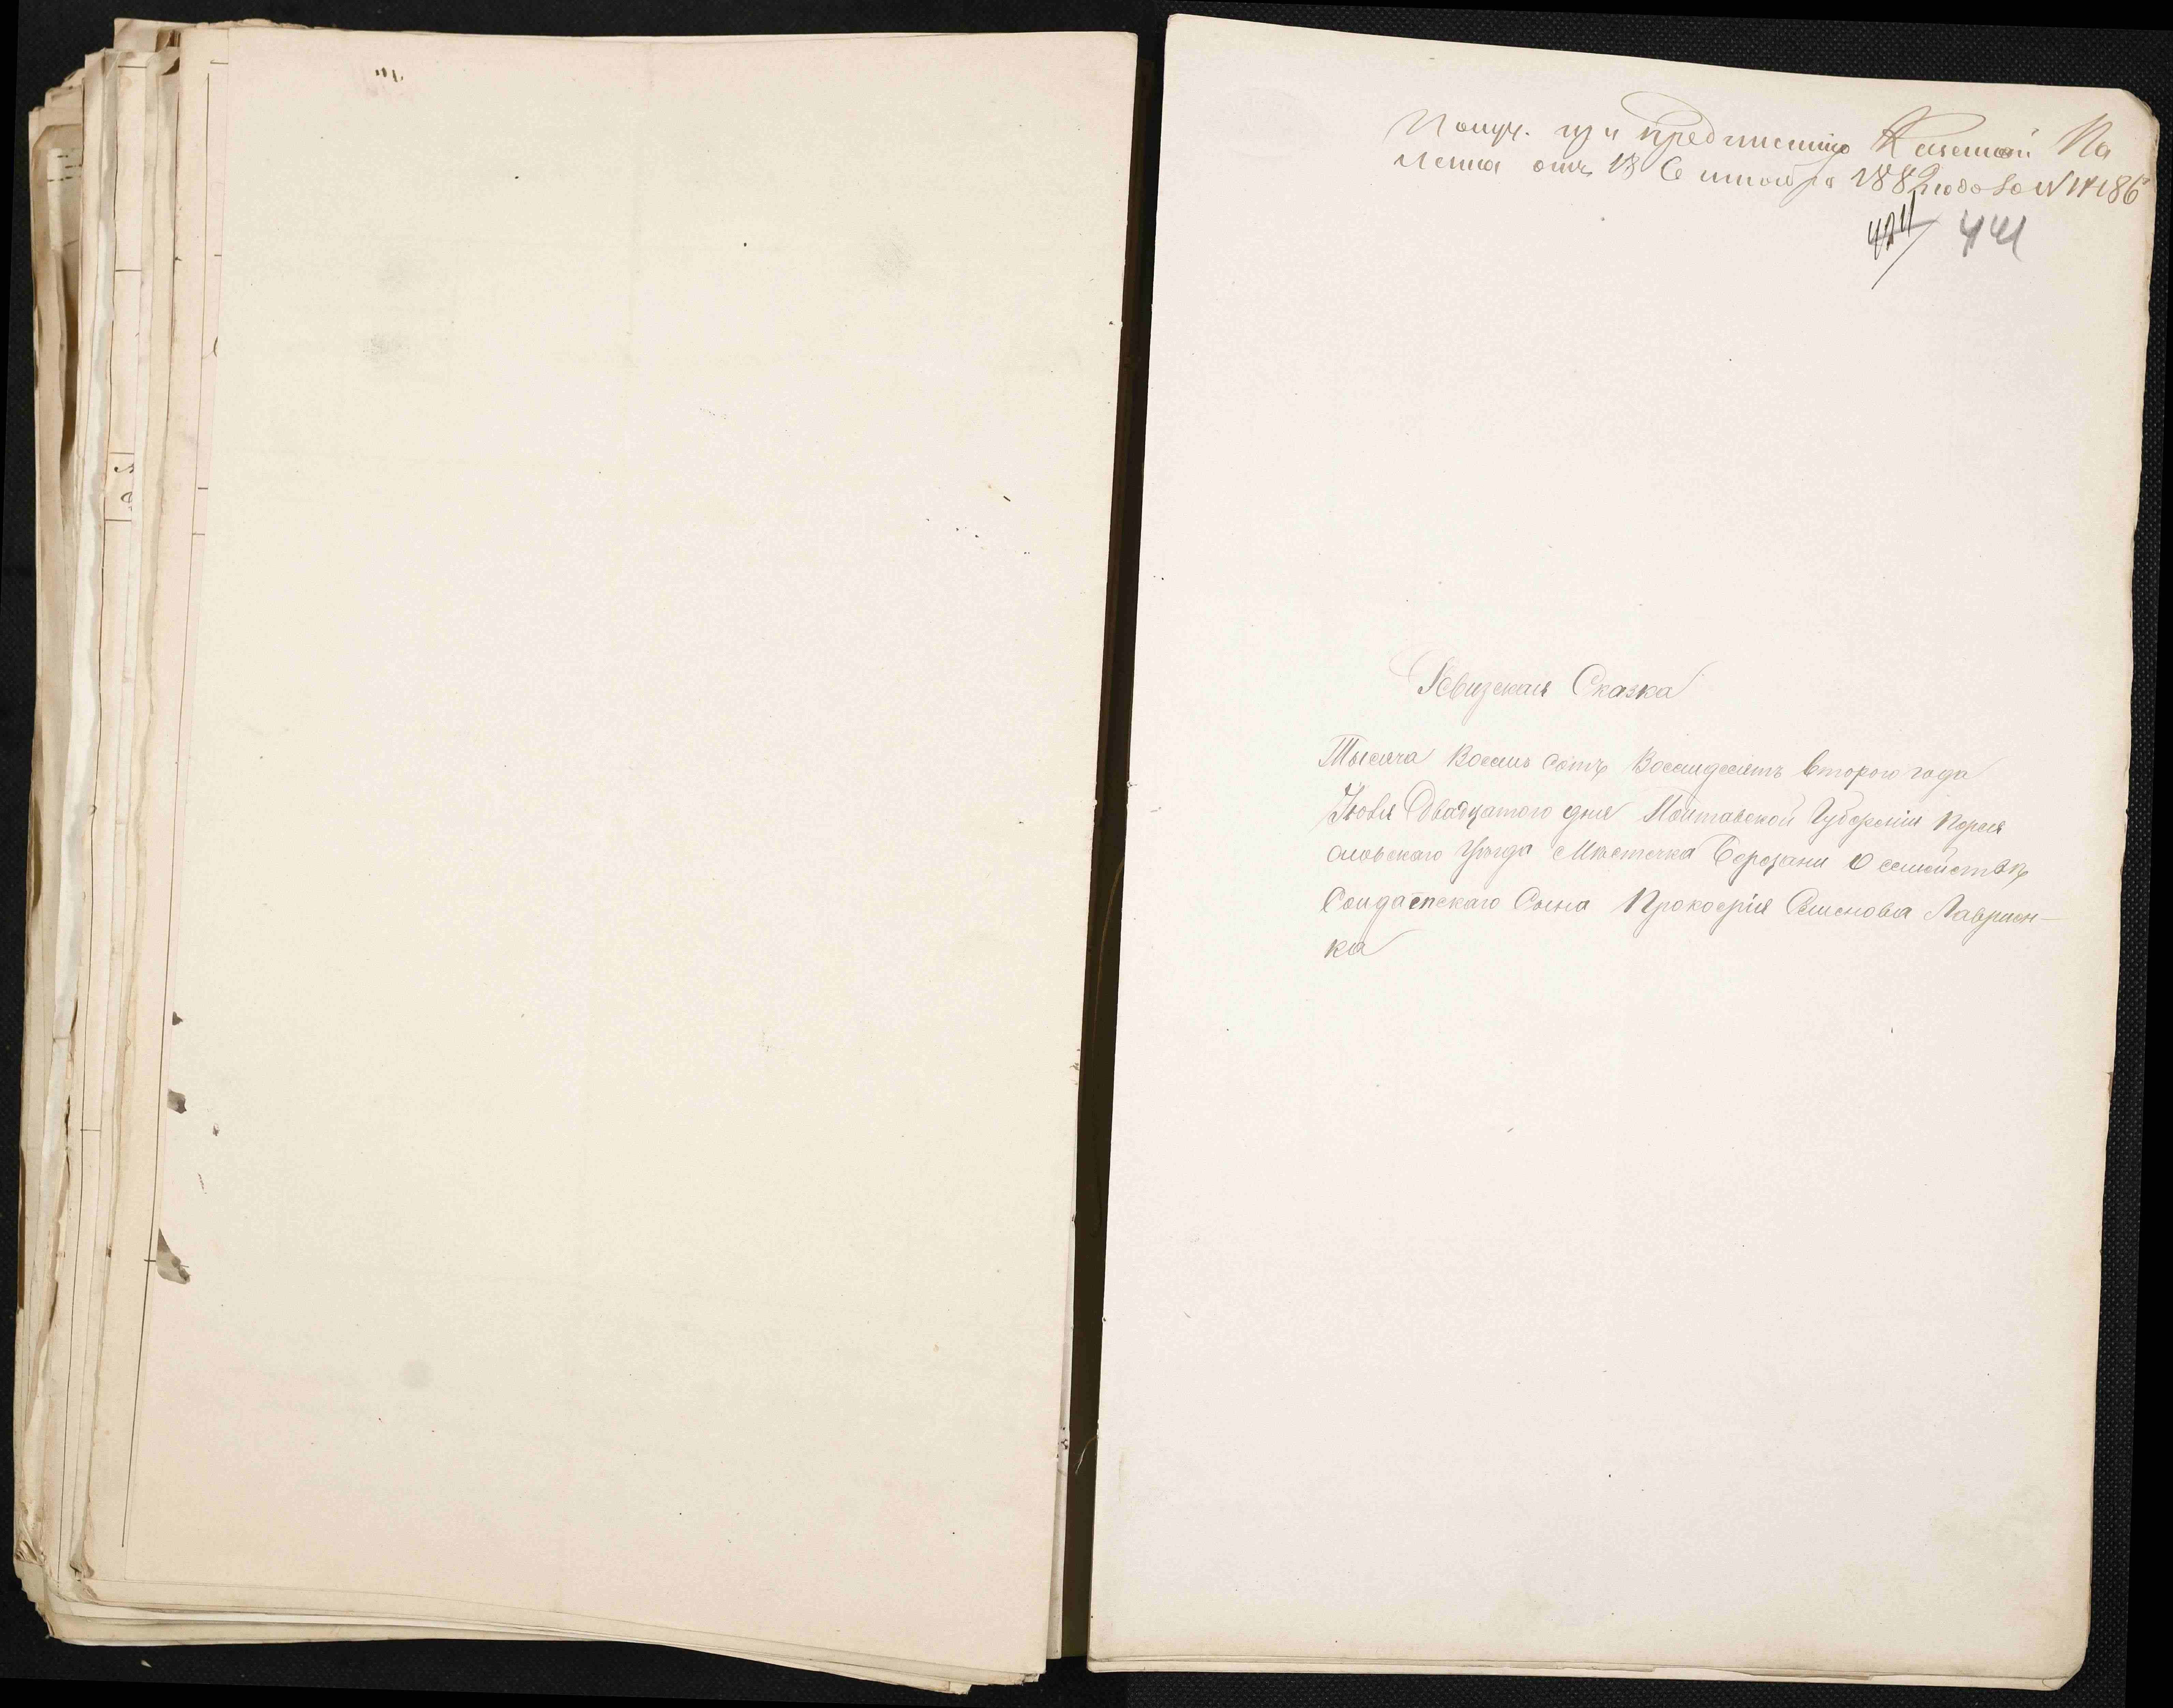 Получ. при предписании Казенной Па
латы отъ 13 Сентября 1882 года за № 14186
424 441
Ревизская Сказка
Тысяча Восемь Сотъ Восемдесятъ второго года
Іюля Двадцатого дня Полтавской Губерніи Перея
славскаго Уѣзда Мѣстечка Березани О семействѣ
Солдатскаго Сына Прокофія Семенова Лавринен-
ка